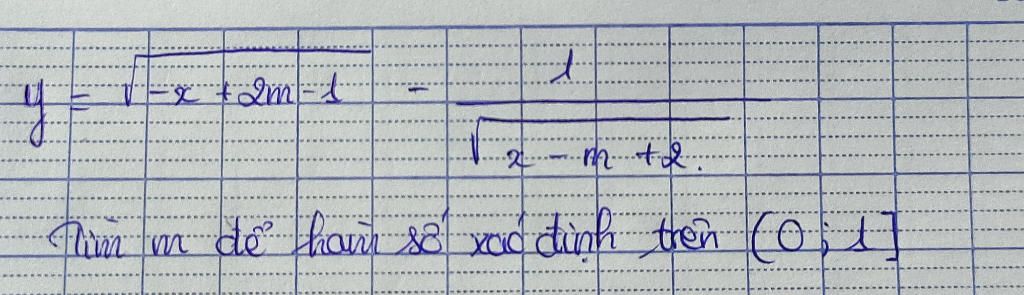 y = √(-x + 2m - 1) - 1/√(x - m + 2.)
Tìm m để hàm số xác định trên (0; 1]